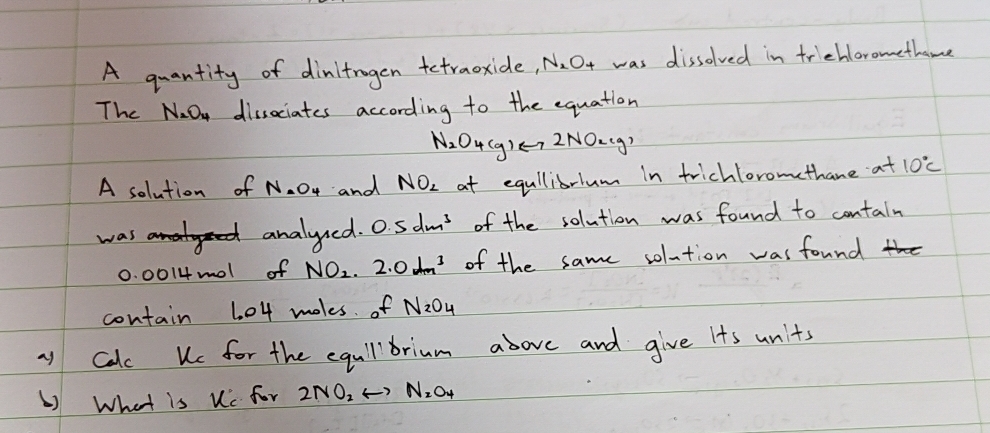 A quantity of dinitrogen tetraoxide, N₂O₄ was dissolved in trichloromethane
The N₂O₄ dissociates according to the equation
N₂O₄(g) ↔ 2NO₂(g)
A solution of N₂O₄ and NO₂ at equilibrium in trichloromethane at 10°c
was analysed analysed. 0.5dm³ of the solution was found to contain
0.0014mol of NO₂. 2.0dm³ of the same solution was found the
contain 1.04 moles of N₂O₄
a) Calc Kc for the equilibrium above and give its units
b) What is Kc for 2NO₂ ↔ N₂O₄